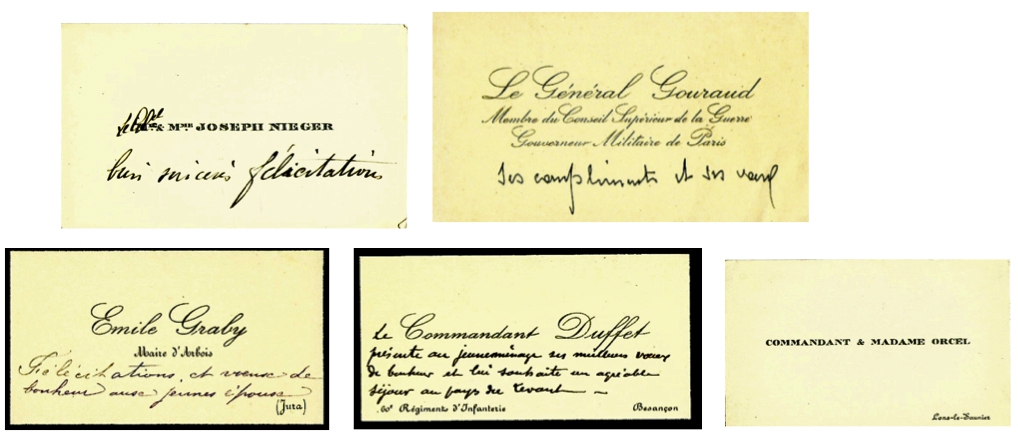 & MME JOSEPH NIEGER
bien sincères félicitations
Le Général Gouraud
Membre du Conseil Supérieur de la Guerre
Gouverneur Militaire de Paris
ses compliments et ses vœux
Emile Graby
Maire d'Arbois
Félicitations et vœux de
bonheur aux jeunes époux
(Jura)
Le Commandant Duffet
présente au jeune ménage ses meilleurs vœux
de bonheur et lui souhaite un agréable
séjour au pays du Levant —
60e Régiment d'Infanterie Besançon
COMMANDANT & MADAME ORCEL
Lons-le-Saunier